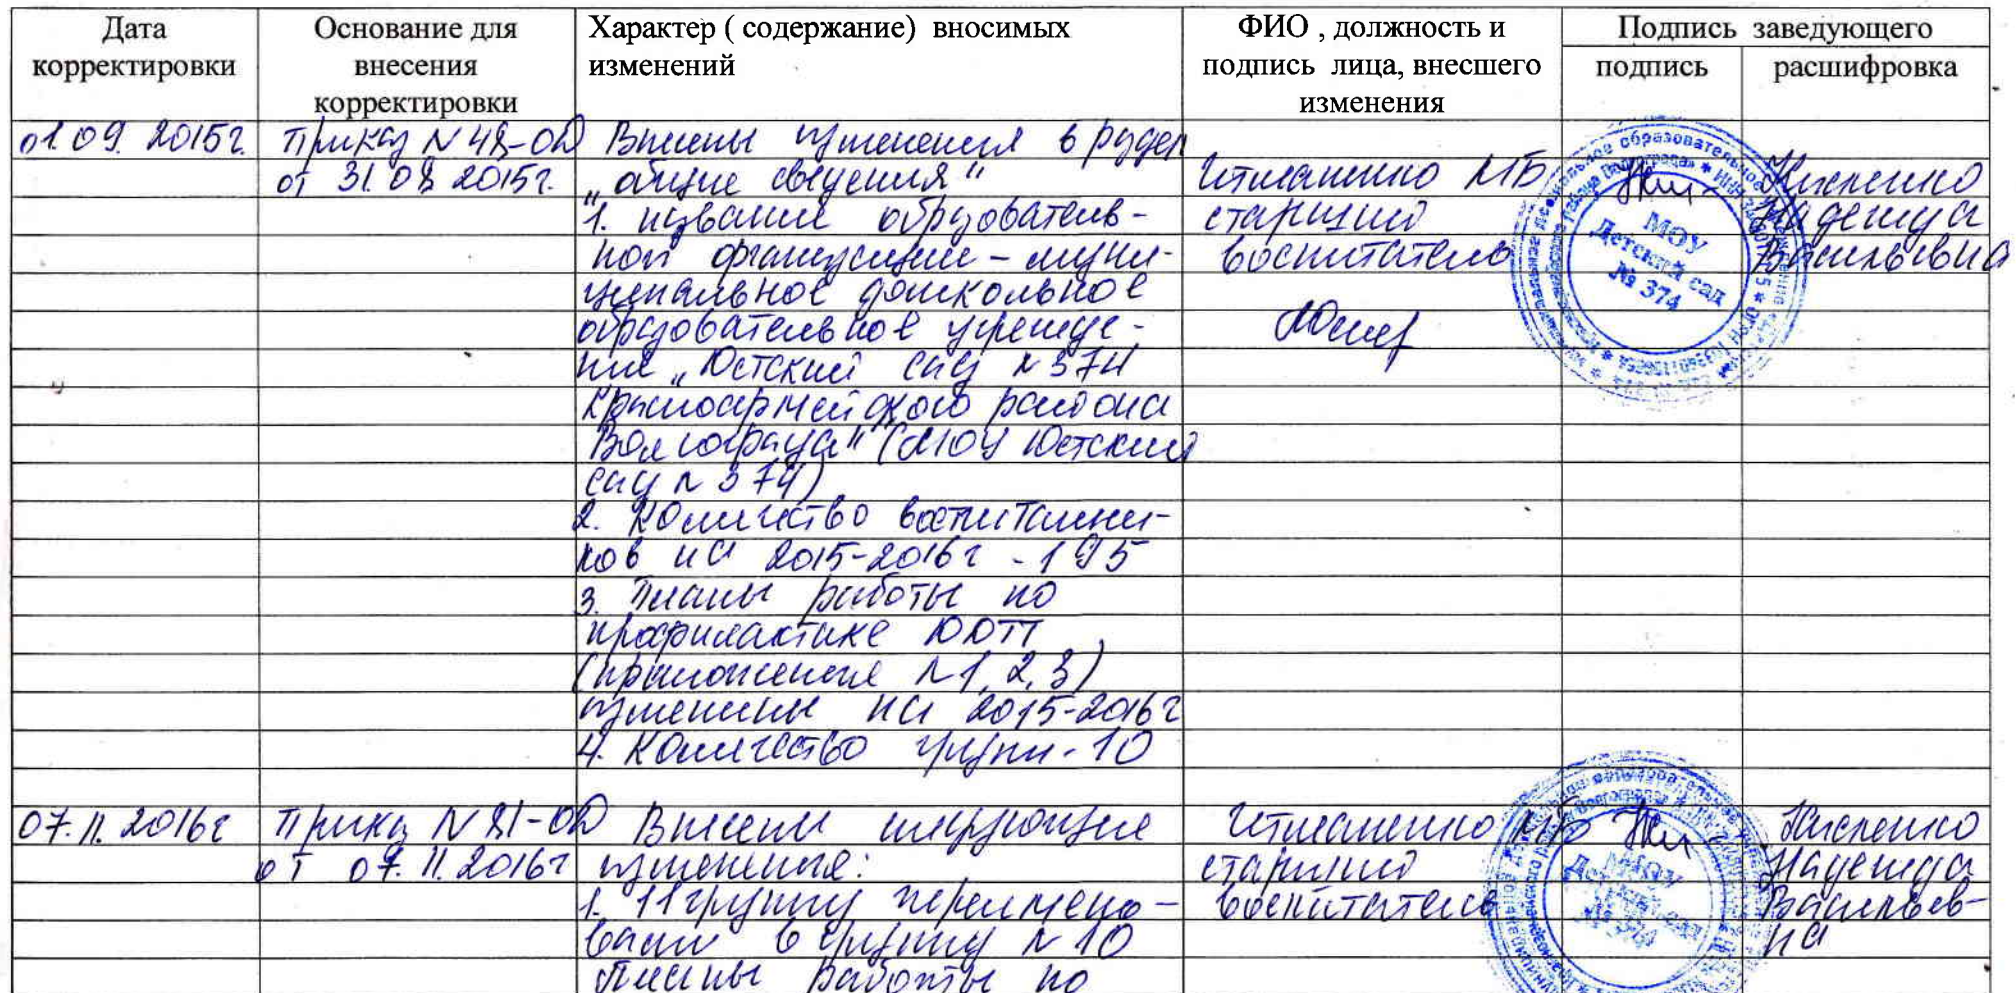 Дата корректировки
Основание для внесения корректировки
Характер ( содержание) вносимых изменений
ФИО , должность и подпись лица, внесшего изменения
Подпись заведующего
подпись
расшифровка
01.09. 2015г.
Приказ N 48-ОД
от 31.08 2015г.
Внесены изменения в раздел
„общие сведения"
1. название образователь-
ной организации - муни-
ципальное дошкольное
образовательное учрежде-
ние „Детский сад N 374
Красноармейского района
Волгограда" (МОУ Детский
сад N 374)
2. Количество воспитанни-
ков на 2015-2016г - 195
3. Планы работы по
профилактике ДДТТ
(приложения N 1, 2, 3)
изменены на 2015-2016г
4. Количество групп - 10
МБ
старший
воспитатель
Надежда
Васильевна
МОУ
Детский сад
№ 374
07.11. 2016г
Приказ N 81-ОД
от 07.11. 2016г
Внесены следующие
изменения:
1. 11 группу переимено-
вали в группу N 10
Планы работы по
МБ
старший
воспитатель
Надежда
Васильев-
на
МОУ
Детский сад